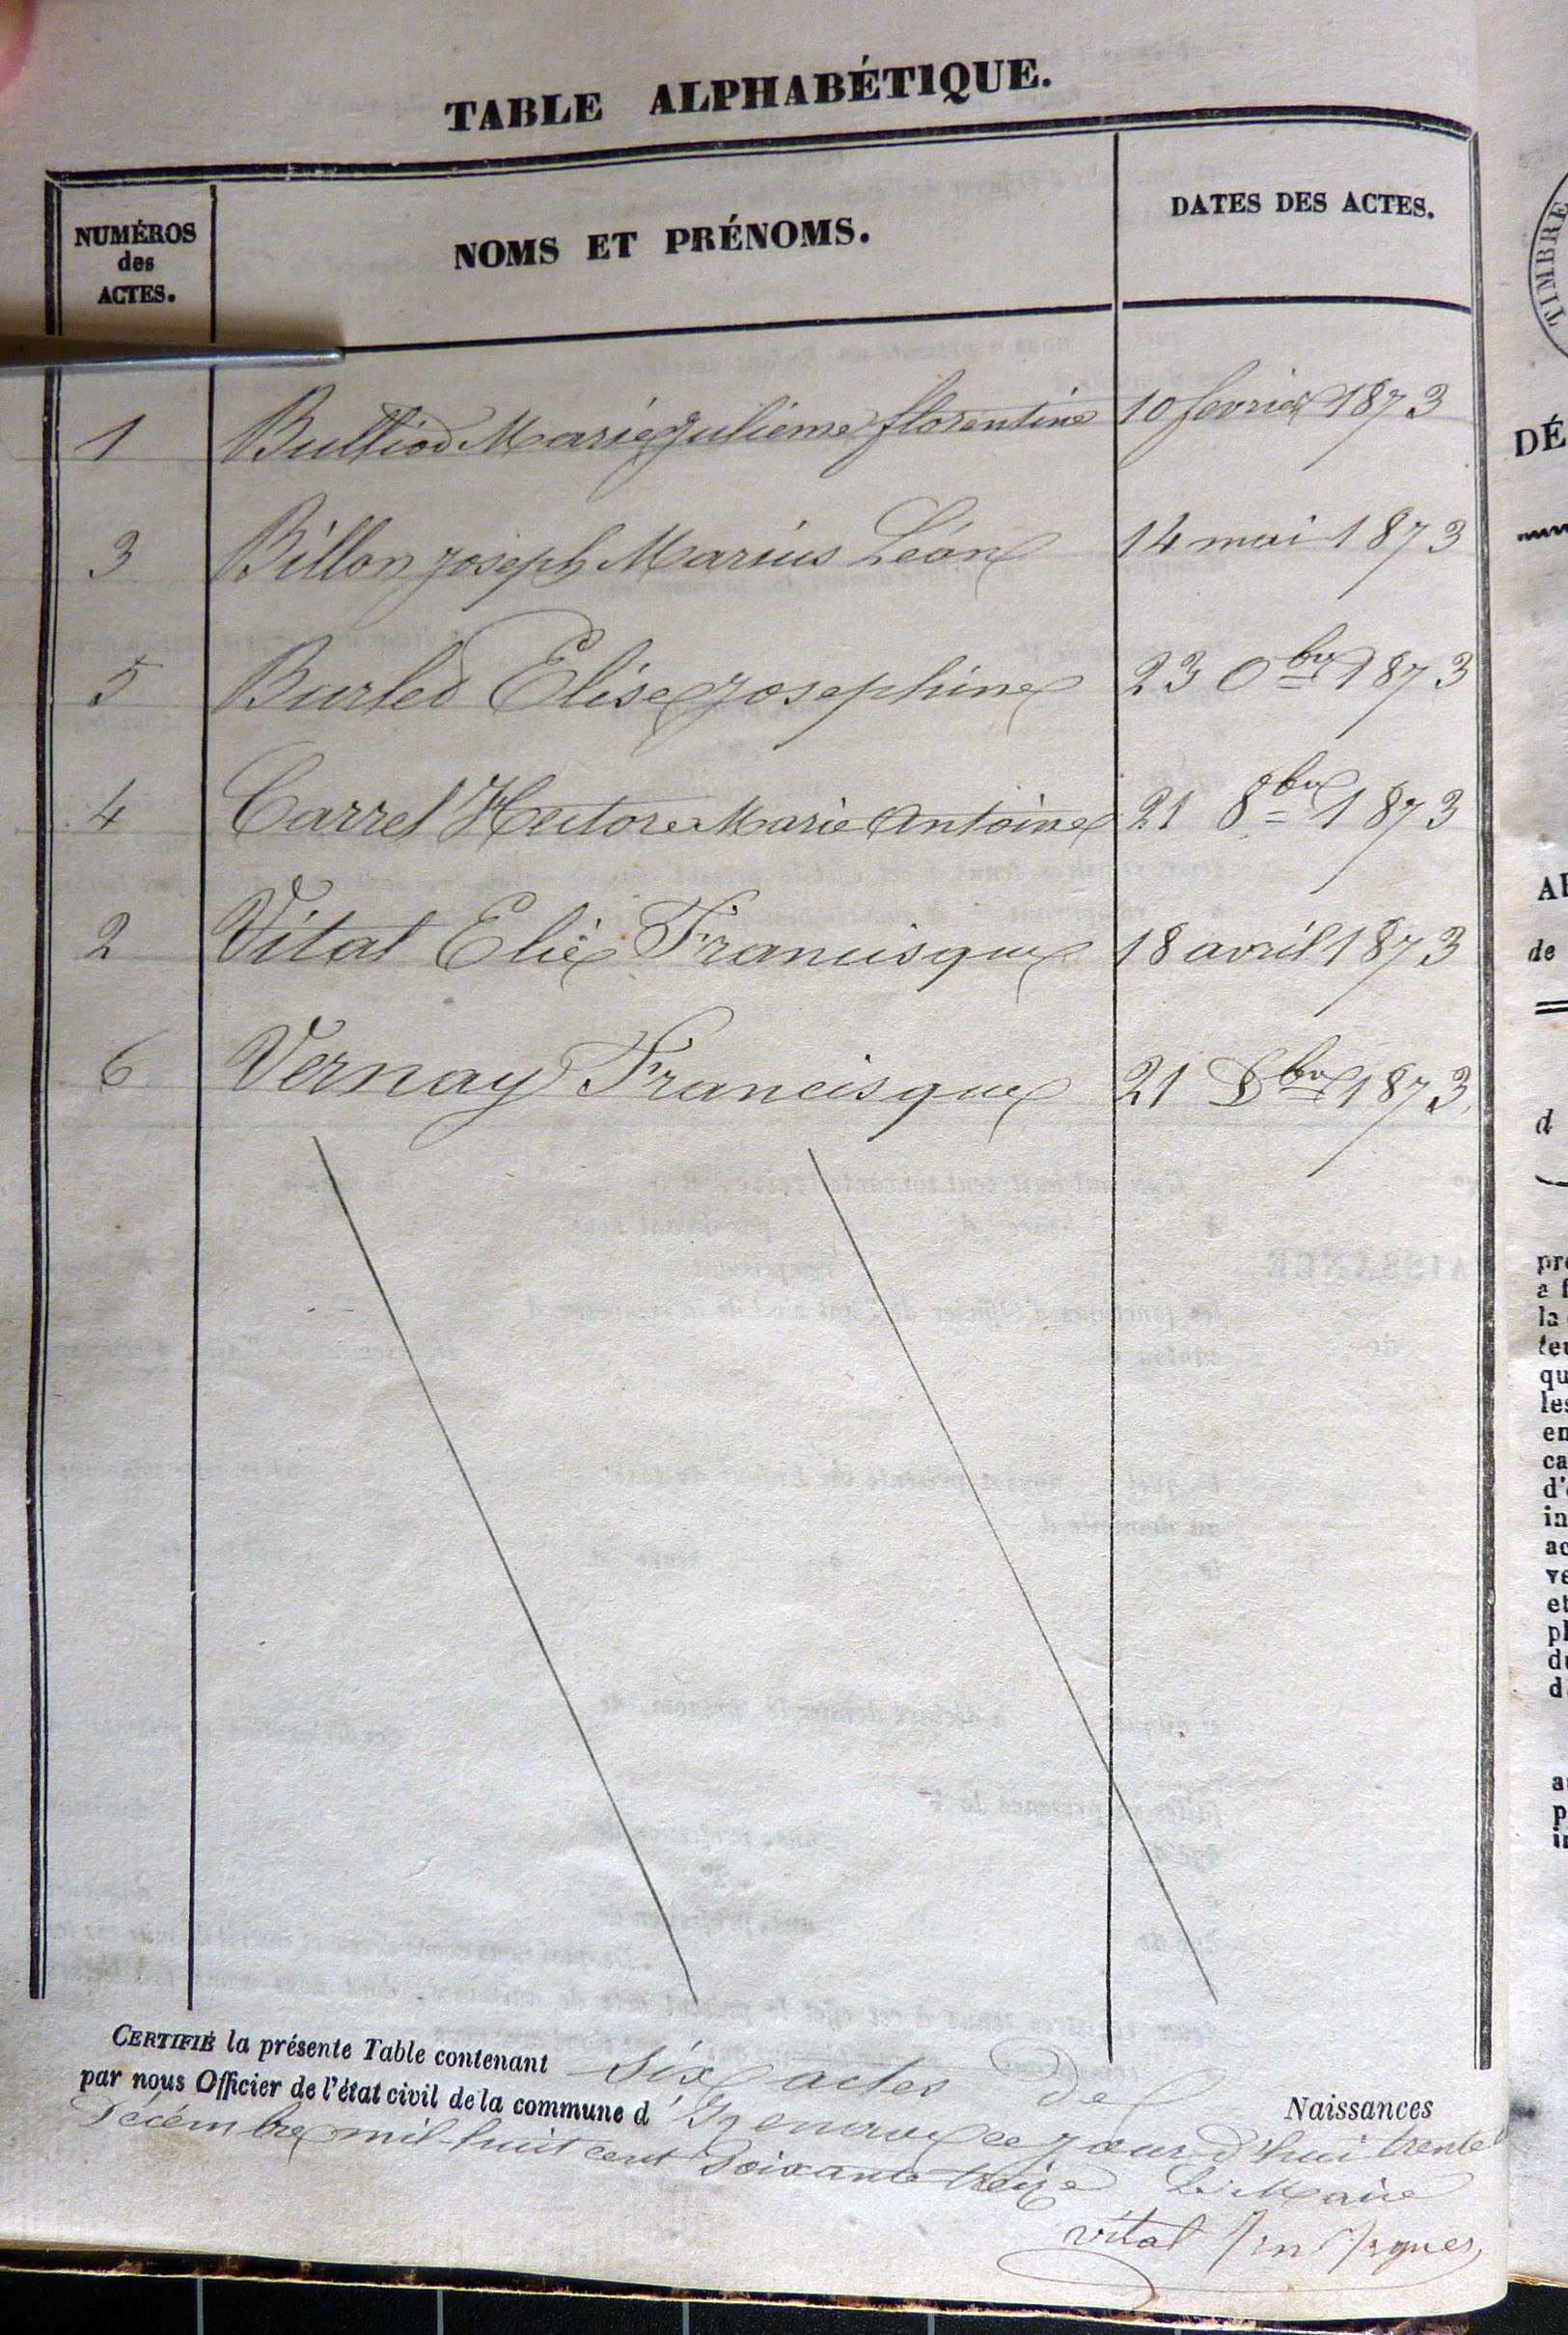 TABLE ALPHABÉTIQUE.
NUMÉROS
des
ACTES.
NOMS ET PRÉNOMS.
DATES DES ACTES.
1 Bulliod Marie Julienne florentine 10 fevrier 1873
3 Billon joseph Marius Léon 14 mai 1873
5 Burled Elise josephine 23 0bre 1873
4 Carrel Hectore Marie Antoine 21 8bre 1873
2 Vital Elie Francisque 18 avril 1873
6 Vernay Francisque 21 Dbre 1873
CERTIFIÉ la présente Table contenant Six actes de Naissances
par nous Officier de l'état civil de la commune d' ce jour d'hui trente
Décembre mil huit cent Soixante treize Le Maire
Vital
TIMBRE
DÉ
de
d